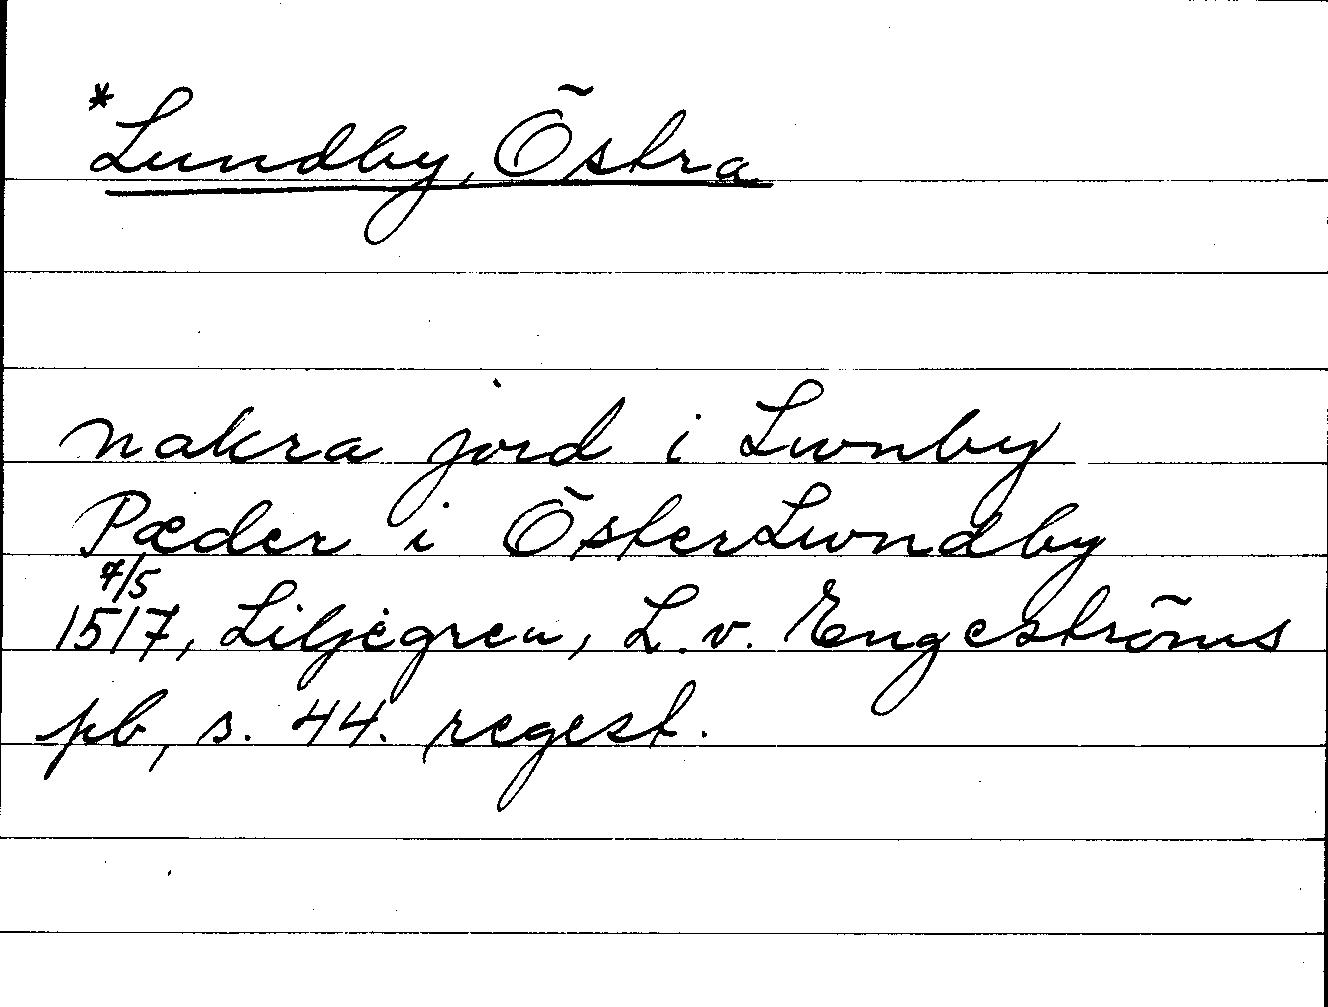 *Lundby, Östra
nakra jord i Lwnby
Pæder i ÖsterLwndby
7/5
1517, Liljegren, L. v. Engeströms
pb, s. 44. regest.